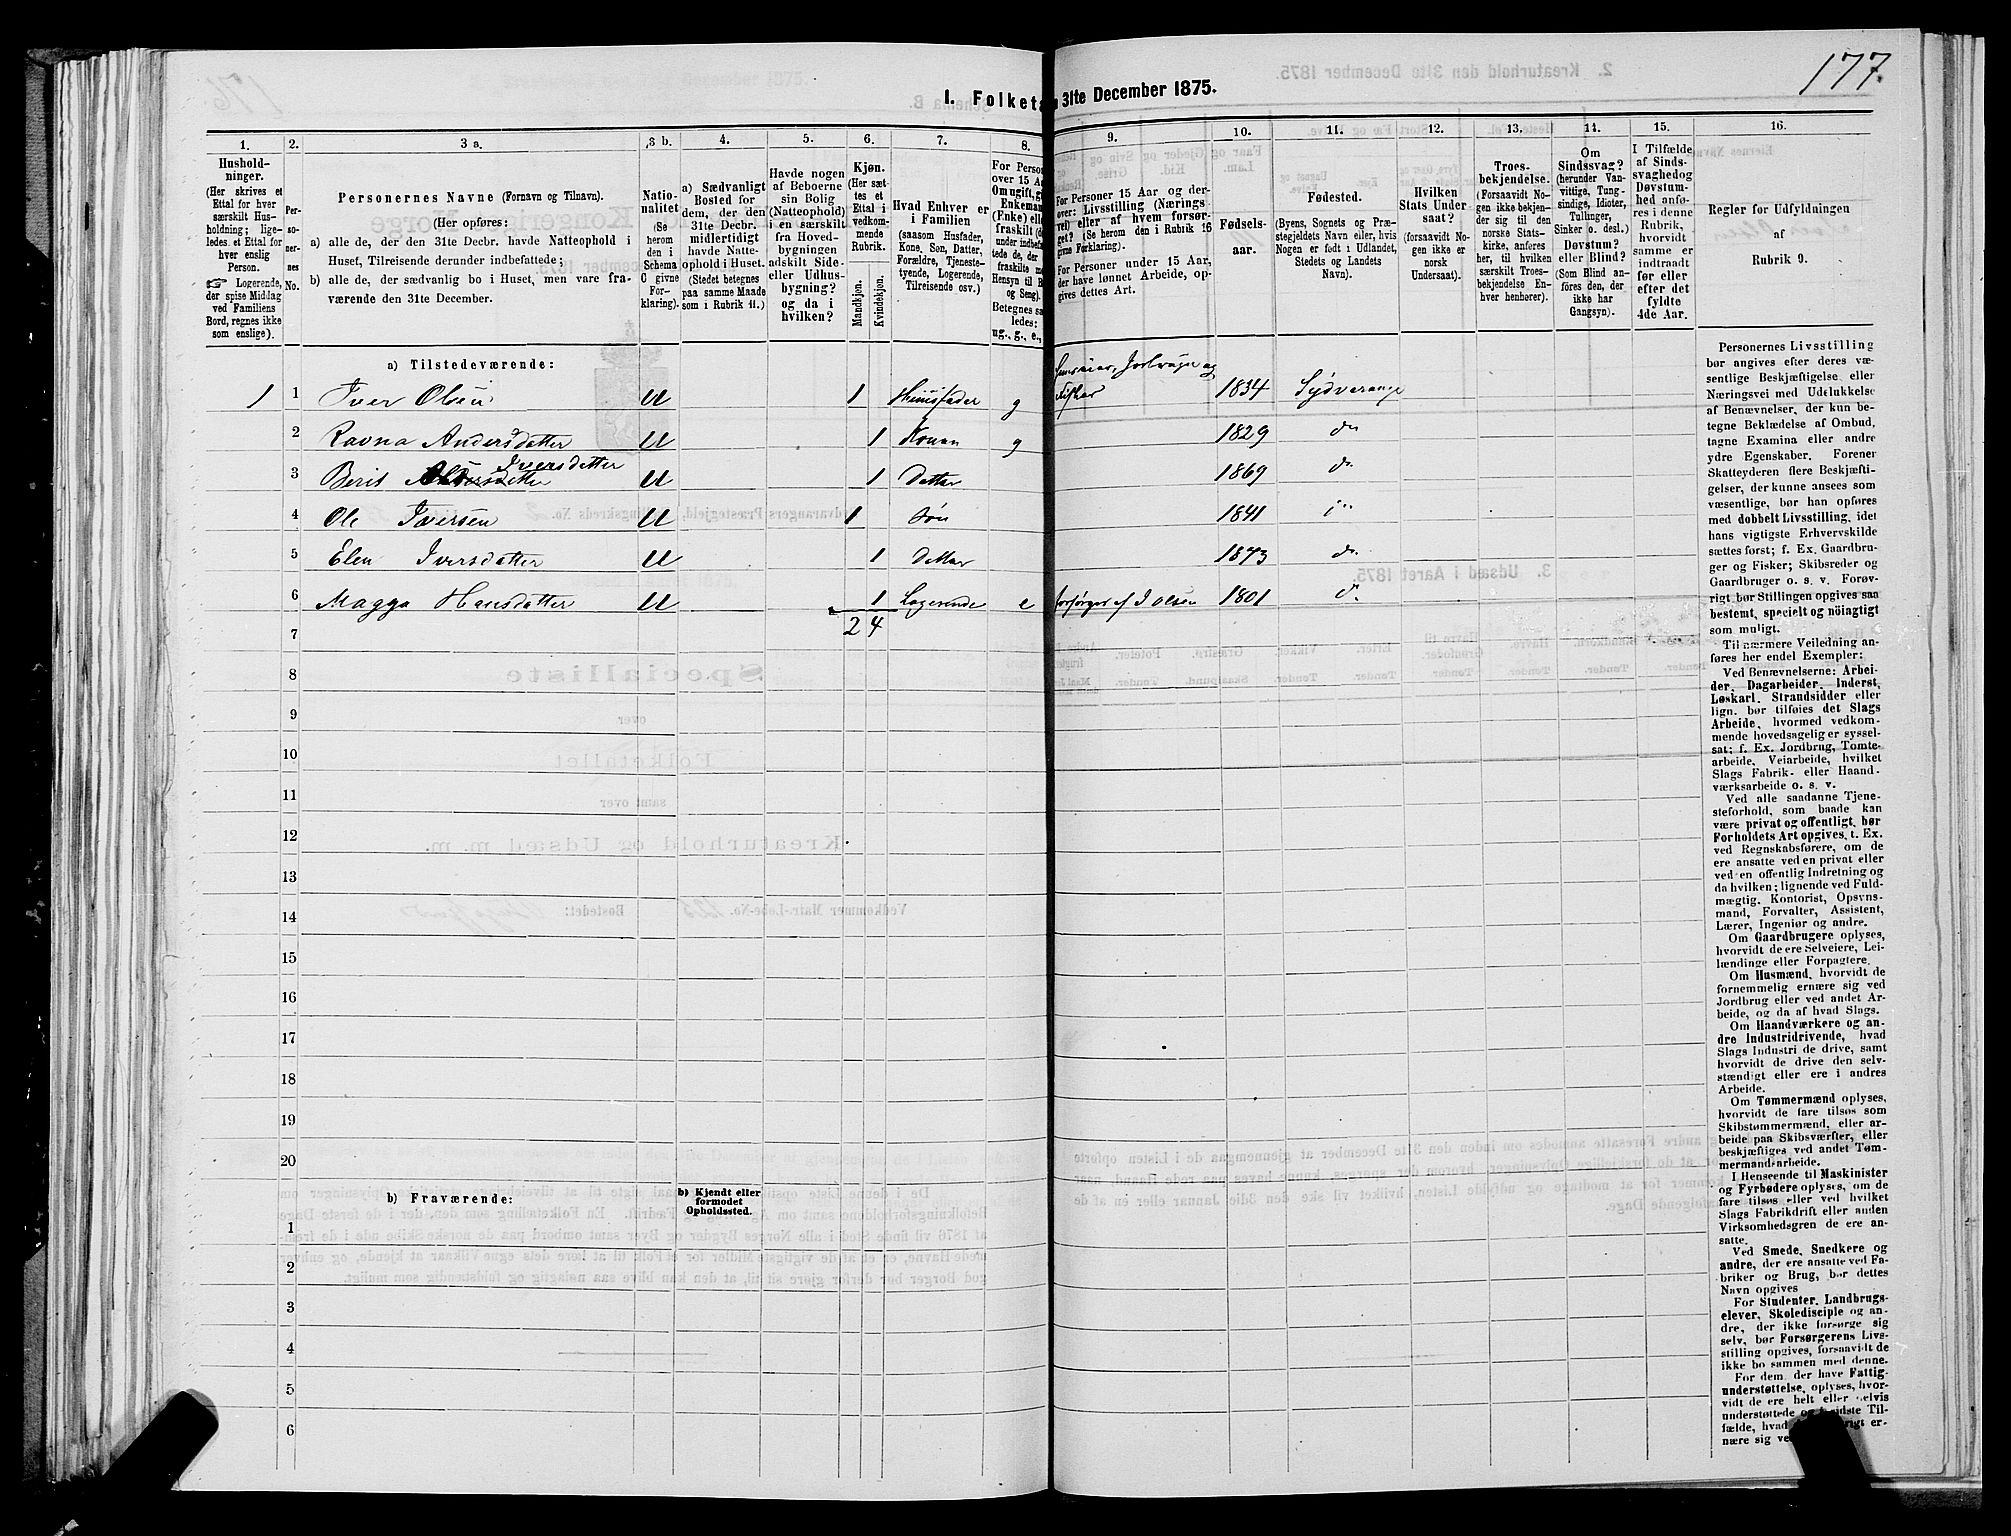 177.
I. Folketa
n 31te December 1875.
1.
2.
3 a.
3 b.
4.
5.
6.
7.
8.
9.
10.
11.
12.
13.
14.
15.
16.
Hushold-
ninger.
(Her skrives et
Ettal for hver
særskilt Hus-
holdning; lige-
ledes et Ettal for
hver enslig
Person.
☞ Logerende,
der spise Middag
ved Familiens
Bord, regnes ikke
som enslige).
Per-
soner-
nes
No.
Personernes Navne (Fornavn og Tilnavn).
(Her opføres:
a) alle de, der den 31te Decbr. havde Natteophold i
Huset, Tilreisende derunder indbefattede;
b) alle de, der sædvanlig bo i Huset, men vare fra-
værende den 31te December.
Natio-
nalitet
(Se
herom
den i
Schema
C givne
For-
klaring).
a) Sædvanligt
Bosted for
dem, der den
31te Decbr.
midlertidigt
havde Natte-
ophold i Huset.
(Stedet betegnes
paa samme Maade
som i Rubrik 11.)
Havde nogen
af Beboerne
sin Bolig
(Natteophold)
i en særskilt
fra Hoved-
bygningen
adskilt Side-
eller Udhus-
bygning?
og da i
hvilken?
Kjøn.
(Her sæt-
tes et
Ettal i
vedkom-
mende
Rubrik.
Mandkjøn.
Kvindekjøn.
Hvad Enhver er
i Familien
(saasom Husfader,
Kone, Søn, Datter,
Forældre, Tjeneste-
tyende, Logerende,
Tilreisende osv.)
For Person
over 15 A
Om ugift, gi
Enkeman
(Enke) ell
fraskilt (d
under indbefa
tede de, der
fraskilte m
Hensyn til B
og Seng).
Betegnes sa
ledes:
ug., g., e.,
For Personer 15 Aar og der-
over: Livsstilling (Nærings
vei) eller af hvem forsør-
get? (Se herom den i Rubrik 16
givne Forklaring.)
For Personer under 15 Aar,
der have lønnet Arbeide, op-
gives dettes Art.
Fødsels-
aar.
Fødested.
(Byens, Sognets og Præ-
stegjeldets Navn eller, hvis
Nogen er født i Udlandet,
Stedets og Landets
Navn).
Hvilken
Stats Under
saat?
(forsaavidt No-
gen ikke er
norsk
Undersaat).
Troes-
bekjendelse.
(Forsaavidt No-
gen ikke bekjen-
der sig til den
norske Stats-
kirke, anføres
her, til hvilken
særskilt Troes-
bekjendelse En-
hver henhører).
Om
Sindssvag?
(herunder Van-
vittige, Tung-
sindige, Idioter,
Tullinger,
Sinker o. desl.)
Døvstum?
eller Blind?
(Som Blind an-
føres den, der
ikke har
Gangsyn).
I Tilfælde
af Sinds-
svaghed og
Døvstum-
hed anfø-
res i denne
Rubrik,
hvorvidt
samme er
indtraadt
før eller
efter det
fyldte
4de Aar.
Regler for Udfyldningen
af
Rubrik 9.
a) Tilstedeværende:
1 1 Iver Olsen U 1 Huusfader g Fisker 1834 Sydvaranger
2 Ravna Andersdatter U 1 Konen g 1829 do
3 Berit Iversdatter U 1 Datter 1869 do
4 Ole Iversen U 1 Søn 1841 do
5 Elen Iversdatter U 1 Datter 1873 do
6 Magga Hansdatter U 1 Logerende e forsørges af I Olsen 1801 do
7 2 4
8
9
10
11
12
13
14
15
16
17
18
19
20
b) Fraværende:
b) Kjendt eller
formodet
Opholdssted.
1
2
3
4
5
6
Personernes Livsstilling
bør angives efter deres væ-
sentlige Beskjæftigelse eller
Næringsvei med Udelukkelse
af Benævnelser, der kun be-
tegne Beklædelse af Ombud,
tagne Examina eller andre
ydre Egenskaber. Forener
Skatteyderen flere Beskjæfti-
gelser, der kunne ansees som
væsentlige, bør han opføres
med dobbelt Livsstilling, idet
hans vigtigste Erhvervskilde
sættes først; f. Ex. Gaardbru-
ger og Fisker; Skibsreder og
Gaardbruger o. s. v. Forøv-
rigt bør Stillingen opgives saa
bestemt, specielt og nøiagtigt
som muligt.
Til nærmere Veiledning an-
føres her endel Exempler:
Ved Benævnelserne: Arbei-
der, Dagarbeider, Inderst,
Løskarl, Strandsidder eller
lign. bør tilføies det Slags
Arbeide, hvormed vedkom-
mende hovedsagelig er syssel-
sat; f. Ex. Jordbrug, Tomte-
arbeide, Veiarbeide, hvilket
Slags Fabrik- eller Haand-
værksarbeide o. s. v.
Ved alle saadanne Tjene-
steforhold, som baade kan
være privat og offentligt, bør
Forholdets Art opgives, t. Ex.
ved Regnskabsførere, om de
ere ansatte ved en privat eller
ved en offentlig Indretning og
da hvilken; lignende ved Fuld-
mægtig, Kontorist, Opsyns-
mand, Forvalter, Assistent,
Lærer, Ingeniør og andre.
Om Gaardbrugere oplyses,
hvorvidt de ere Selveiere, Lei-
lændinge eller Forpagtere.
Om Husmænd, hvorvidt de
fornemmelig ernære sig ved
Jordbrug eller ved andet Ar-
beide, og da af hvad Slags.
Om Haandværkere og an-
dre Industridrivende, hvad
Slags Industri de drive, samt
hvorvidt de drive den selv-
stændigt eller ere i andres
Arbeide.
Om Tømmermænd oplyses,
hvorvidt de fare tilsøs som
Skibstømmermænd, eller ar-
beide paa Skibsværfter, eller
beskjæftiges ved andet Tøm-
mermandsarbeide.
I Henseende til Maskinister
og Fyrbødere oplyses, om de
fare tilsøs eller ved hvilket
Slags Fabrikdrift eller anden
Virksomhedsgren de ere an-
satte.
Ved Smede, Snedkere og
andre, der ere ansatte ved Fa-
briker og Brug, bør dettes
Navn opgives
For Studenter, Landbrugs-
elever, Skoledisciple og an-
dre, der ikke forsørge sig
selv, bør Forsørgerens Livs-
stilling opgives, forsaavidt de
ikke bo sammen med denne.
For dem, der have Fattig-
understøttelse, oplyses, hvor-
vidt de ere helt eller delvis
understøttede